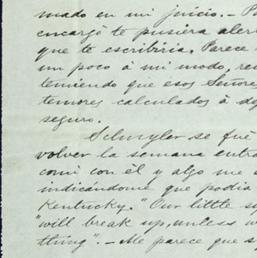 mado en mi juicio.- P
encargó te pusiera aler
que te escribiria. Parece
un poco á mi modo, re
temiendo que esos Señore
temores calculados á de
seguro.
Schuyler se fué
volver la semana entra
comi con él y algo me
indicándome que podia
Kentucky. "Our little s
"will break up, unless w
thing. - Me parece que s